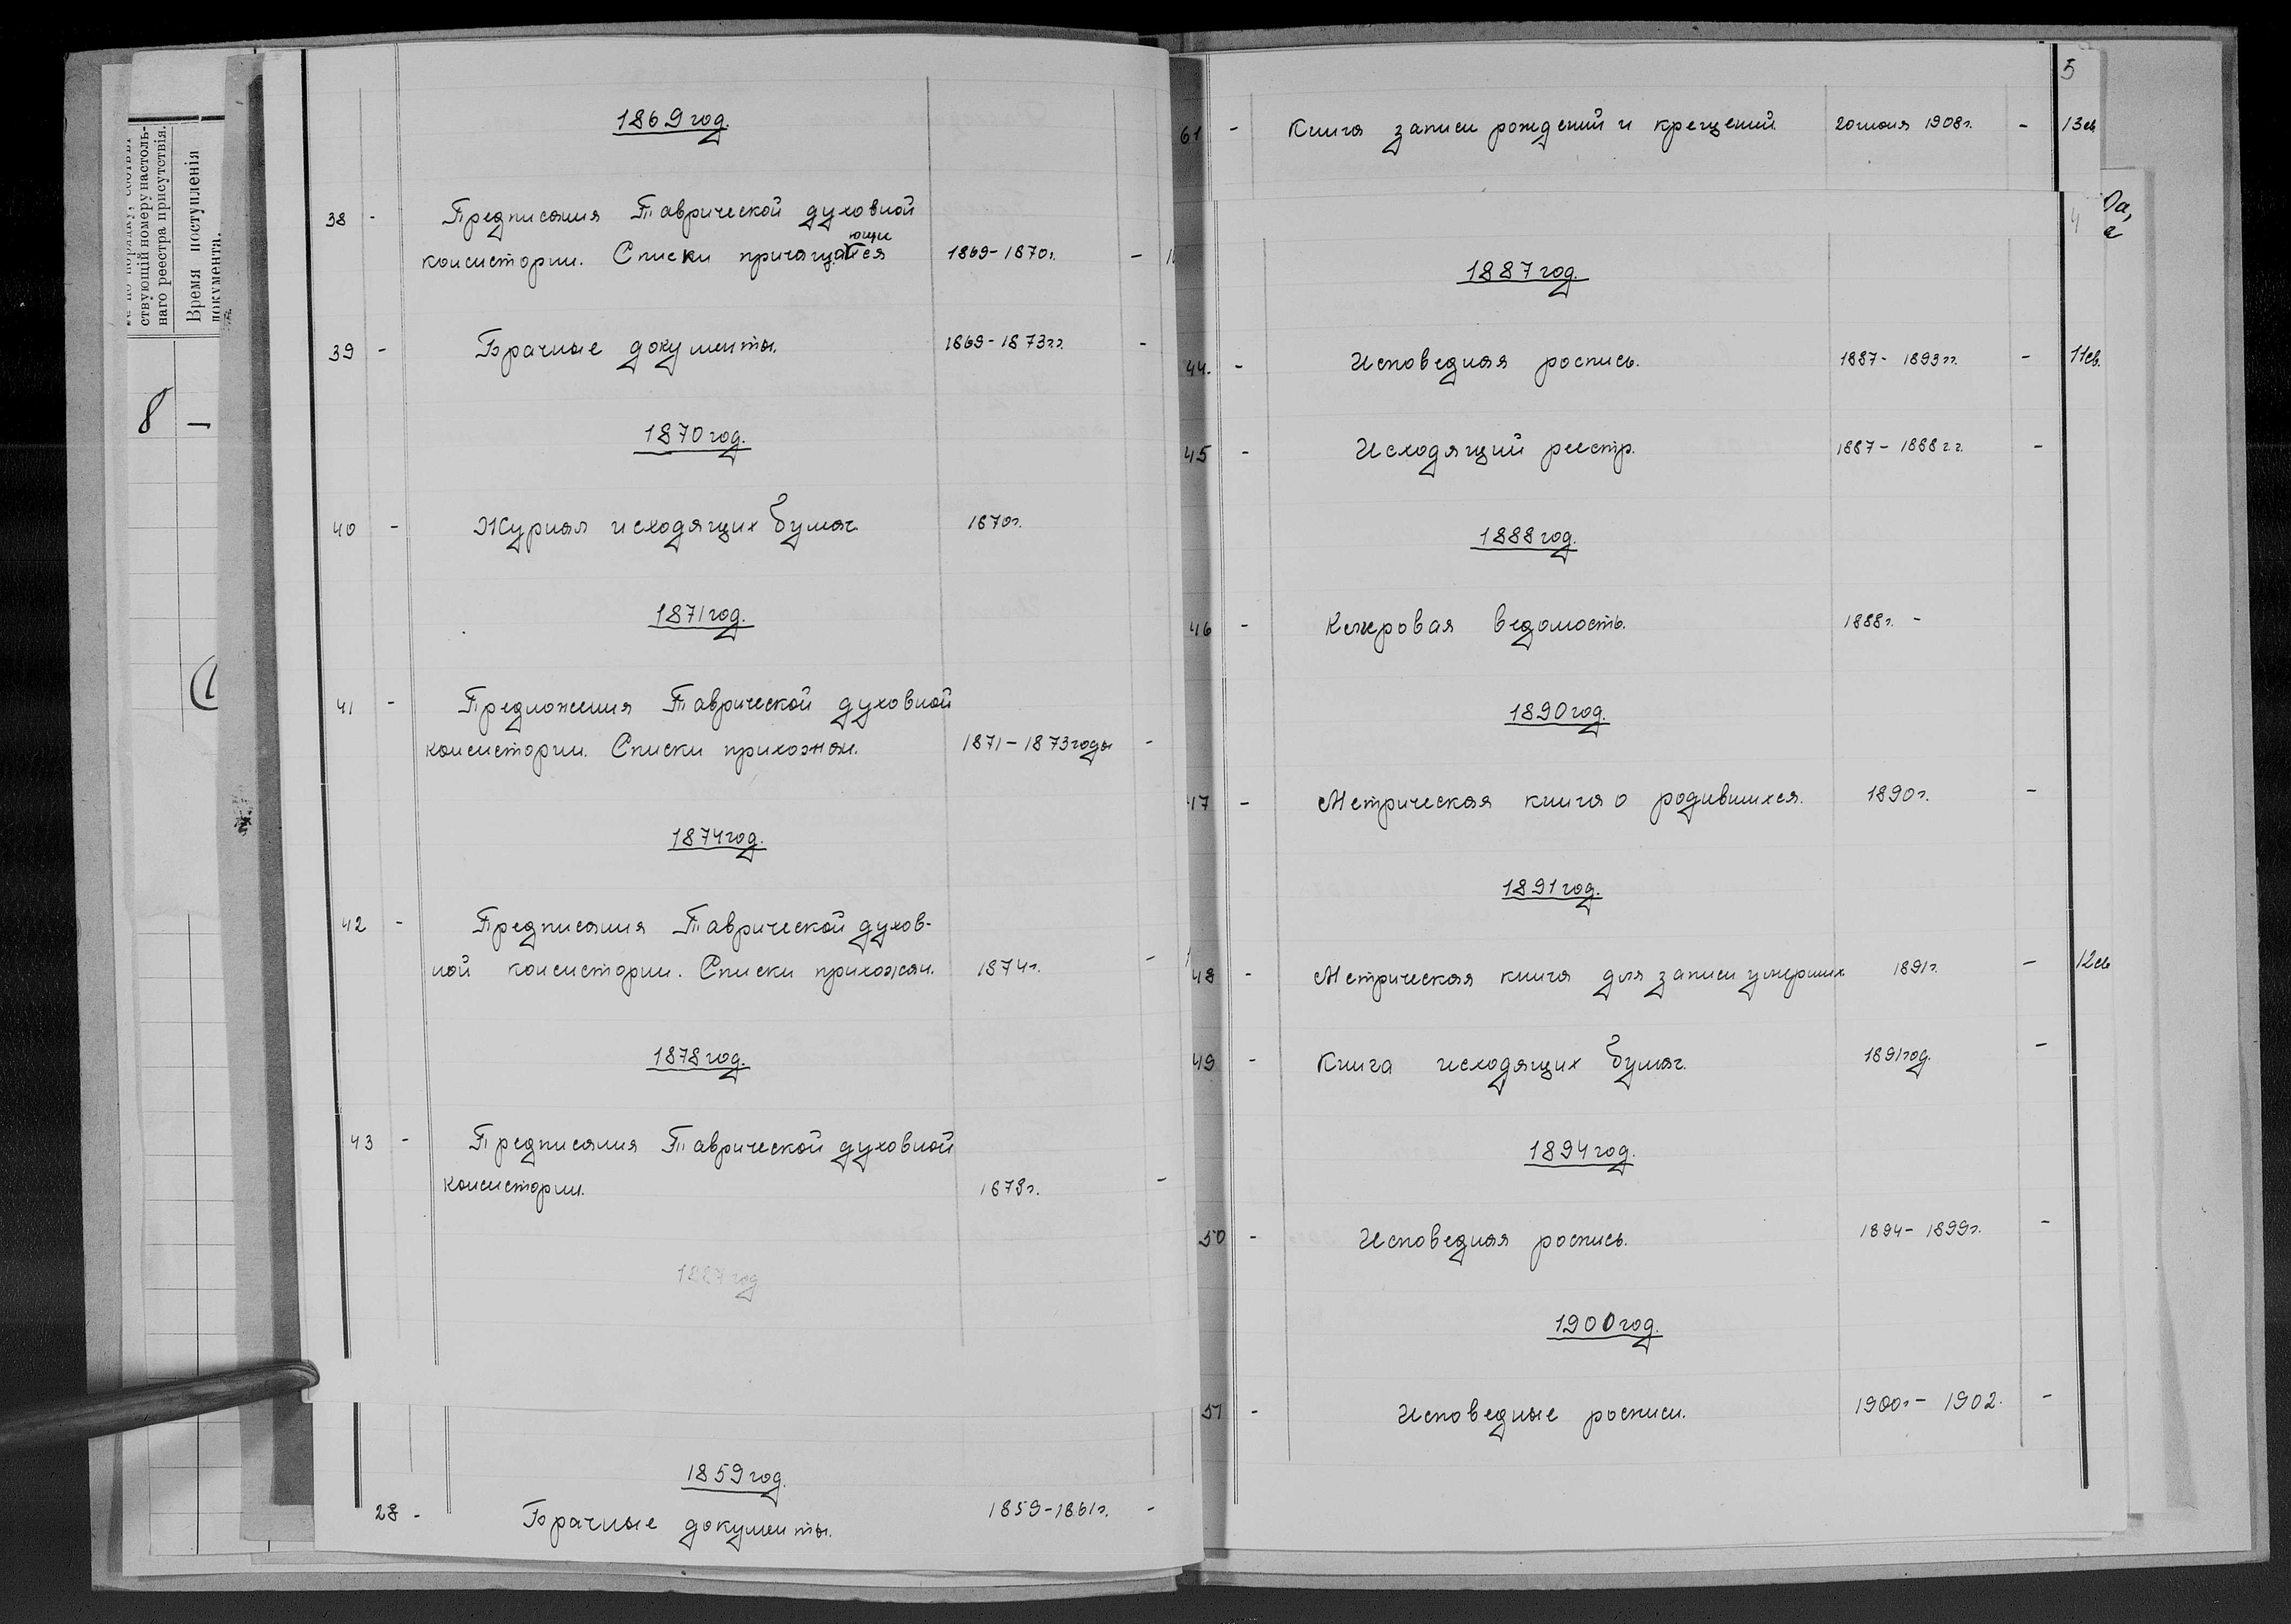 ствующій номеру настоль-
наго реестра присутствія.
Время поступленія
документа.
8 —
1869 год.
38 - Предписания Таврической духовной
ющи
консистории. Списки причащатся 1869-1870г. -
39 - Брачные документы. 1869-1873гг. -
1870 год.
40 - Журнал исходящих бумаг 1870г.
1871 год.
41 - Предложения Таврической духовной
консистории. Списки прихожан. 1871-1873 годы -
1874 год.
42 - Предписания Таврической духов-
ной консистории. Списки прихожан. 1874г. -
1878 год.
43 - Предписания Таврической духовной
консистории. 1878г. -
1887 год
1859 год.
28 - Брачные документы. 1859-1861г. -
5
61 - Книга записи рождений и крещений. 20 июля 1908г. - 13св
4
1887 год.
44. - Исповедная роспись. 1887-1893гг. - 11св.
45 - Исходящий реестр. 1887-1888 г.г. -
1888 год.
46 - Клировая ведомость. 1888г. -
1890 год.
47 - Метрическая книга о родившихся. 1890г. -
1891 год.
48 - Метрическая книга для записи умерших 1891г. - 12св
49 - Книга исходящих бумаг. 1891 год. -
1894 год.
50 - Исповедная роспись. 1894-1899г. -
1900 год.
51 - Исповедные росписи. 1900г-1902. -